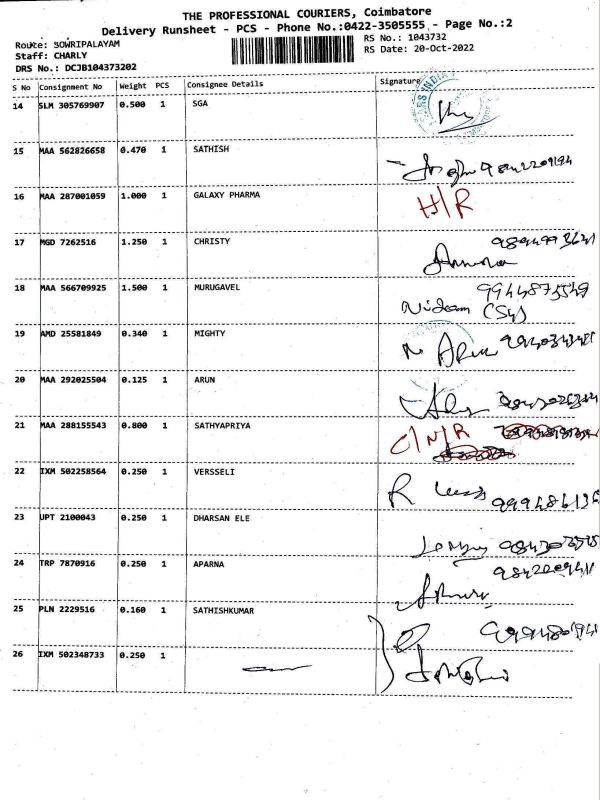 THE PROFESSIONAL COURIERS, Coimbatore
Delivery Runsheet - PCS - Phone No.:0422-3505555 - Page No.:2
Route: SOWRIPALAYAM
RS No.: 1043732
Staff: CHARLY
RS Date: 20-Oct-2022
DRS No.: DCJB104373202
S No Consignment No Weight PCS Consignee Details Signature
14 SLM 305769907 0.500 1 SGA
15 MAA 562826658 0.470 1 SATHISH
16 MAA 287001059 1.000 1 GALAXY PHARMA H/R
17 MGD 7262516 1.250 1 CHRISTY
18 MAA 566709925 1.500 1 MURUGAVEL 9944875549
19 AMD 25581849 0.340 1 MIGHTY
20 MAA 292025504 0.125 1 ARUN
21 MAA 288155543 0.800 1 SATHYAPRIYA C/N/R
22 IXM 502258564 0.250 1 VERSSELI
23 UPT 2100043 0.250 1 DHARSAN ELE
24 TRP 7870916 0.250 1 APARNA
25 PLN 2229516 0.160 1 SATHISHKUMAR
26 IXM 502348733 0.250 1